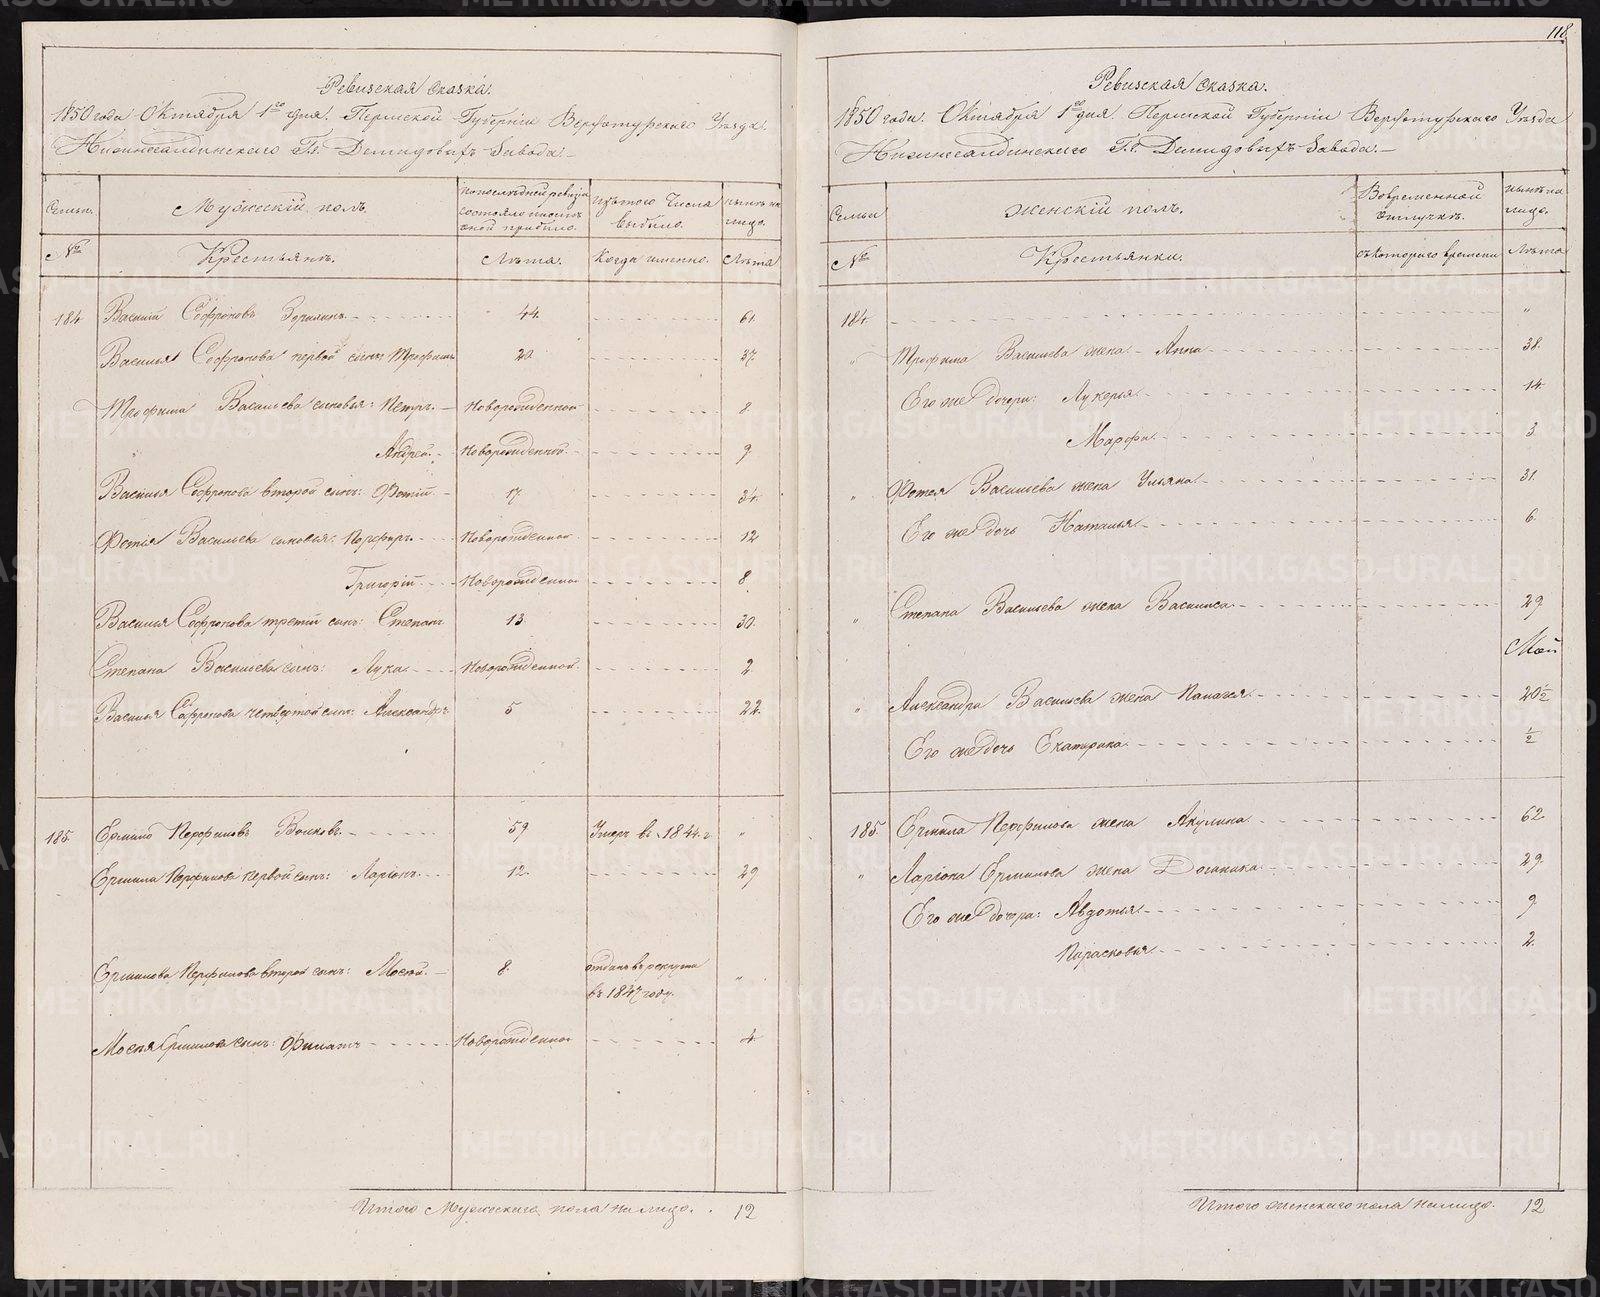 Ревизская сказка.
1850 года Октября 1го дня. Пермской Губернiи Верхотурскаго Уезда.
Нижнесалдинскаго Г.г. Демидовыхъ Завода.
Семьи.
Мужескiй полъ.
По последней ревизiи состояло и после оной прибыло.
Изъ того Числа выбыло.
Ныне на лицо.
№
Крестьянъ.
Лета.
Когда именно.
Лета
184 Василiй Софроновъ Зорихинъ 44. 61.
Василья Софронова первой сынъ Трофимъ 20 37.
Трофима Васильева сыновья: Петръ. Новорожденной 8
Андрей. Новорожденной 9
Василья Софронова второй сынъ: Фотiй 17 34.
Фотiя Васильева сыновья: Порфиръ Новорожденной 12
Григорiй Новорожденной 8
Василья Софронова третiй сынъ: Степанъ 13 30.
Степана Васильева сынъ: Лука Новорожденной 2
Василья Софронова четвертой сынъ: Александръ 5 22.
185. Ермило Перфиловъ Волковъ 59 Умеръ въ 1844 г. "
Ермила Перфилова первой сынъ: Ларiонъ 12. 29
Ермилова Перфилова второй сынъ: Мосей. 8. отданъ въ рекруты "
въ 1847 году.
Мосея Ермилова сынъ: Филатъ Новорожденной 4
Итого Мужескаго пола на лицо. 12
118
Ревизская сказка.
1850 года. Октября 1го дня. Пермской Губернiи Верхотурскаго Уезда
Нижнесалдинскаго Г.г. Демидовыхъ Завода.
Семьи
Женскiй полъ.
Во временной отлучке.
Ныне на лицо.
№
Крестьянки.
съ котораго времени
Лета
184. "
" Трофима Васильева жена Анна 38.
Его же дочери: Лукерья 14.
Марфа. 3
" Фотея Васильева жена Ульяна 31.
Его же дочь Наталья 6.
" Степана Васильева жена Василиса 29.
" Александра Васильева жена Палагея 20½
Его же дочь Екатерина ½
185. Ермила Перфилова жена Акулина 62.
" Ларiона Ермилова жена 29.
Его же дочери: Авдотья 9
Парасковья 2.
Итого женскаго пола на лицо. 12
METRIKI.GASO-URAL.RU